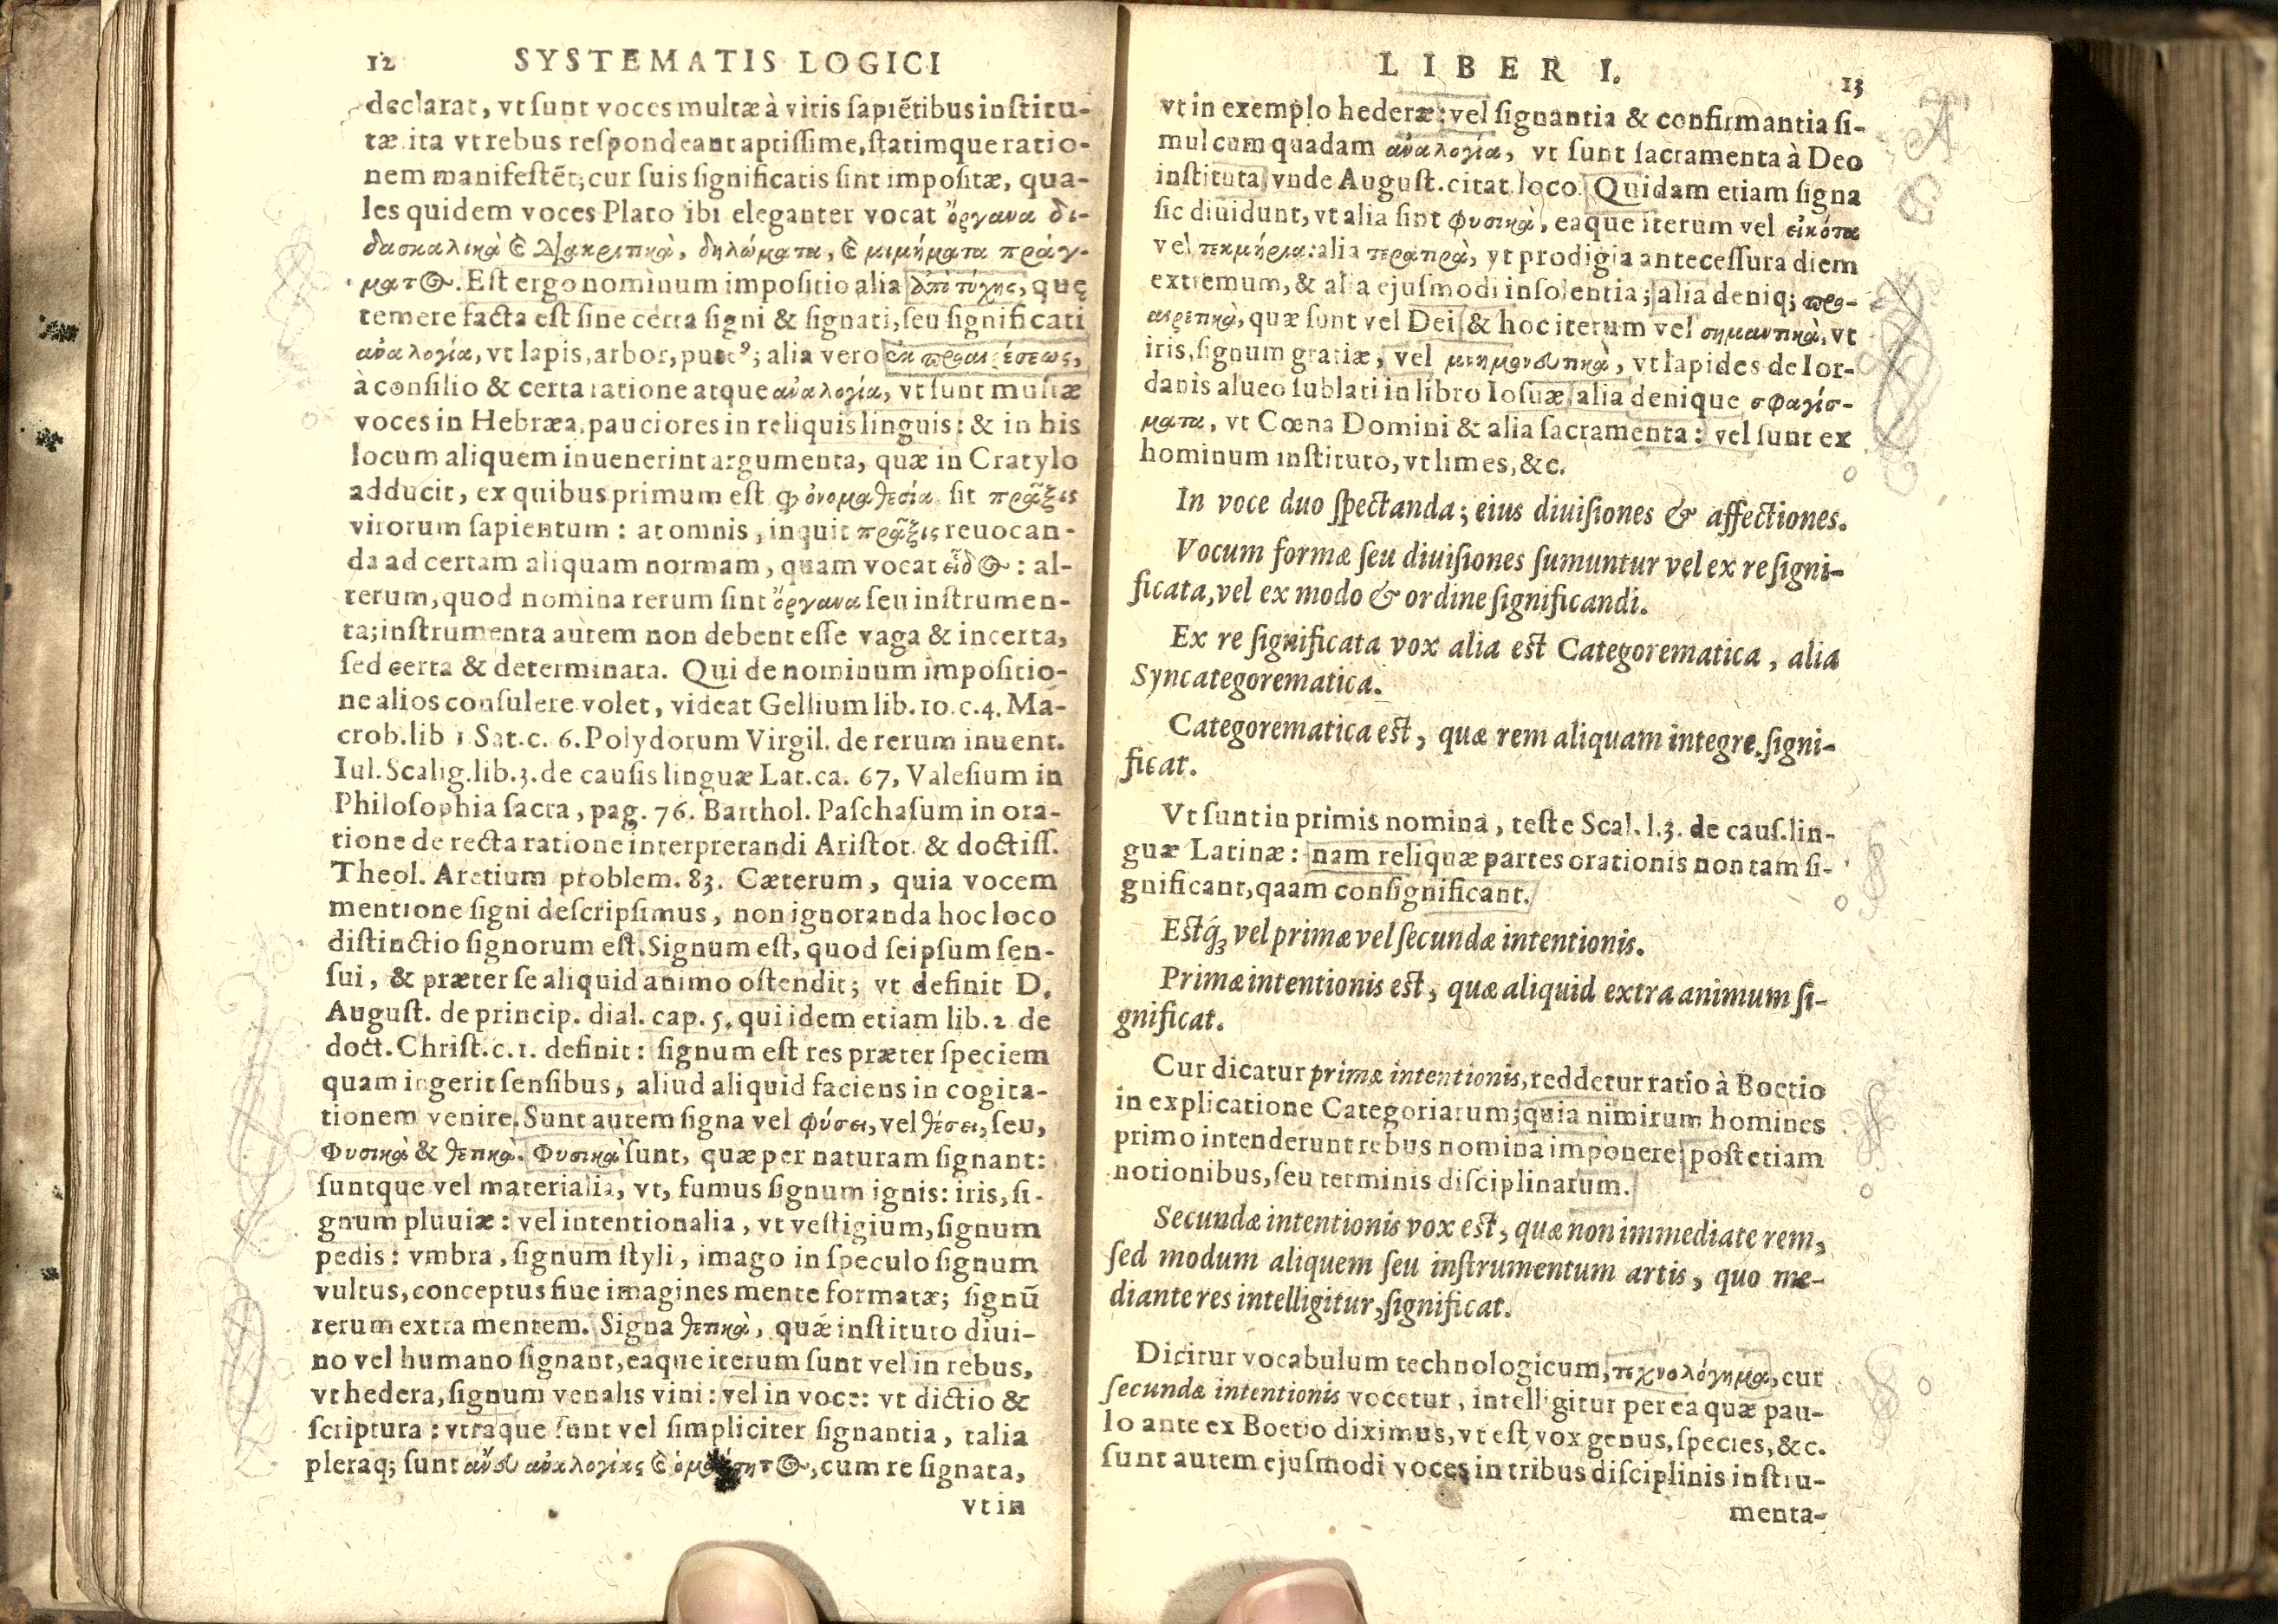 12 SYSTEMATIS LOGICI
declarat, vt ſunt voces multæ à viris ſapiẽtibus inſtitu-
tæ ita vt rebus reſpondeant aptiſſime, ſtatimque ratio-
nem manifeſtẽt, cur ſuis ſignificatis ſint impoſitæ, qua-
les quidem voces Plato ibi eleganter vocat ὄργανα δι-
δασκαλικὰ ϗ διακριτικὰ, δηλώματα, ϗ μιμήματα πράγ-
ματος. Eſt ergo nominum impoſitio alia ἀπὸ τύχης, quę
temere facta eſt ſine certa ſigni & ſignati, ſeu ſignificati
ἀναλογία, vt lapis, arbor, puteꝰ; alia vero ἐκ προαιρέσεως,
à conſilio & certa ratione atque ἀναλογία, vt ſunt multæ
voces in Hebræa, pauciores in reliquis linguis: & in his
locum aliquem inuenerint argumenta, quæ in Cratylo
adducit, ex quibus primum eſt ꝙ ὀνομαθεσία ſit πρᾶξις
virorum ſapientum: at omnis, inquit πρᾶξις reuocan-
da ad certam aliquam normam, quam vocat εἶδος: al-
terum, quod nomina rerum ſint ὄργανα ſeu inſtrumen-
ta; inſtrumenta autem non debent eſſe vaga & incerta,
ſed certa & determinata. Qui de nominum impoſitio-
ne alios conſulere volet, videat Gellium lib. 10. c. 4. Ma-
crob. lib 1 Sat. c. 6. Polydorum Virgil. de rerum inuent.
Iul. Scalig. lib. 3. de cauſis linguæ Lat. ca. 67, Valeſium in
Philoſophia ſacra, pag. 76. Barthol. Paſchaſum in ora-
tione de recta ratione interpretandi Ariſtot. & doctiſſ.
Theol. Aretium problem. 83. Cæterum, quia vocem
mentione ſigni deſcripſimus, non ignoranda hoc loco
diſtinctio ſignorum eſt. Signum eſt, quod ſeipſum ſen-
ſui, & præter ſe aliquid animo oſtendit; vt definit D.
Auguſt. de princip. dial. cap. 5. qui idem etiam lib. 2 de
doct. Chriſt. c. 1. definit: ſignum eſt res præter ſpeciem
quam ingerit ſenſibus, aliud aliquid faciens in cogita-
tionem venire. Sunt autem ſigna vel φύσει, vel θέσει, ſeu,
Φυσικὰ & θετικὰ. Φυσικὰ ſunt, quæ per naturam ſignant:
ſuntque vel materialia, vt, fumus ſignum ignis: iris, ſi-
gnum pluuiæ: vel intentionalia, vt veſtigium, ſignum
pedis: vmbra, ſignum ſtyli, imago in ſpeculo ſignum
vultus, conceptus ſiue imagines mente formatæ; ſignũ
rerum extra mentem. Signa θετικὰ, quæ inſtituto diui-
no vel humano ſignant, eaque iterum ſunt vel in rebus,
vt hedera, ſignum venalis vini: vel in voce: vt dictio &
ſcriptura: vtraque ſunt vel ſimpliciter ſignantia, talia
pleraq; ſunt ἄνευ ἀναλογίας ϗ cum re ſignata,
vt in
LIBER I. 13
vt in exemplo hederæ: vel ſignantia & confirmantia ſi-
mul cum quadam ἀναλογία, vt ſunt ſacramenta à Deo
inſtituta, vnde Auguſt. citat. loco. Quidam etiam ſigna
ſic diuidunt, vt alia ſint φυσικὰ, eaque iterum vel εἰκότα
vel τεκμήρια: alia vt prodigia anteceſſura diem
extremum, & alia ejuſmodi inſolentia; alia deniq; προ-
αιρετικὰ, quæ ſunt vel Dei & hoc iterum vel σημαντικὰ, vt
iris, ſignum gratiæ, vel μνημονευτικὰ, vt lapides de Ior-
danis alueo ſublati in libro Ioſuæ alia denique σφαγίσ-
ματα, vt Cœna Domini & alia ſacramenta: vel ſunt ex
hominum inſtituto, vt limes, &c.
In voce duo ſpectanda; eius diuiſiones & affectiones.
Vocum formæ ſeu diuiſiones ſumuntur vel ex re ſigni-
ficata, vel ex modo & ordine ſignificandi.
Ex re ſignificata vox alia eſt Categorematica, alia
Syncategorematica.
Categorematica eſt, quæ rem aliquam integre ſigni-
ficat.
Vt ſunt in primis nomina, teſte Scal. l. 3. de cauſ. lin-
guæ Latinæ: nam reliquæ partes orationis non tam ſi-
gnificant, qaam conſignificant.
Eſtq́ꝫ vel primæ vel ſecundæ intentionis.
Primæ intentionis eſt, quæ aliquid extra animum ſi-
gnificat.
Cur dicatur primæ intentionis, reddetur ratio à Boetio
in explicatione Categoriarum; quia nimirum homines
primo intenderunt rebus nomina imponere poſt etiam
notionibus, ſeu terminis diſciplinarum.
Secundæ intentionis vox eſt, quæ non immediate rem,
ſed modum aliquem ſeu inſtrumentum artis, quo me-
diante res intelligitur, ſignificat.
Dicitur vocabulum technologicum, τεχνολόγημα, cur
ſecundæ intentionis vocetur, intelligitur per ea quæ pau-
lo ante ex Boetio diximus, vt eſt vox genus, ſpecies, &c.
ſunt autem ejuſmodi voces in tribus diſciplinis inſtru-
menta-